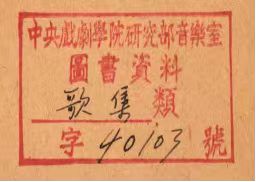 中央戲劇學院研究部音樂室
圖書資料
歌集類
字40103號